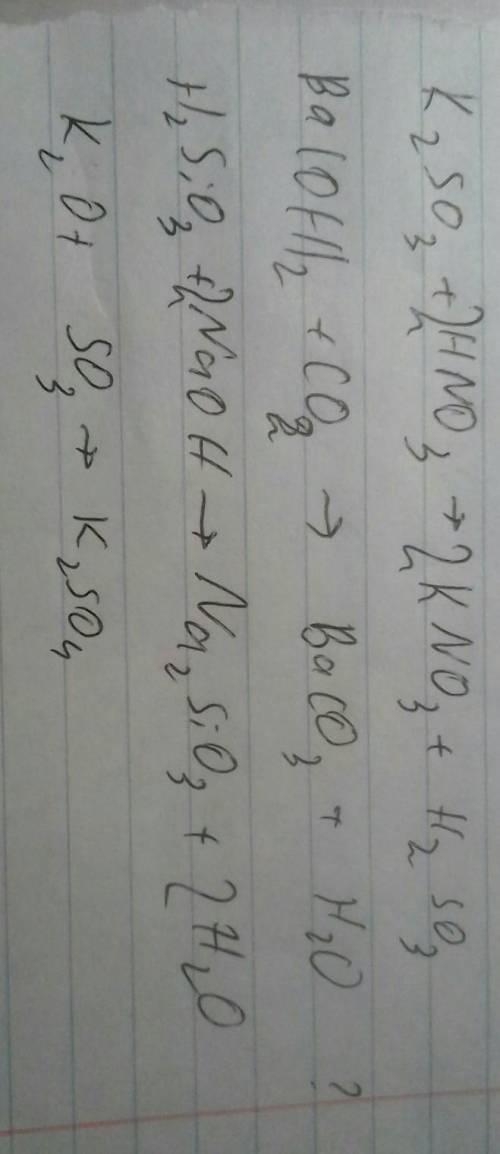 K₂SO₃ + 2HNO₃ → 2KNO₃ + H₂SO₃
Ba(OH)₂ + CO₂ → BaCO₃ + H₂O ?
H₂SiO₃ + 2NaOH → Na₂SiO₃ + 2H₂O
K₂O + SO₃ → K₂SO₄